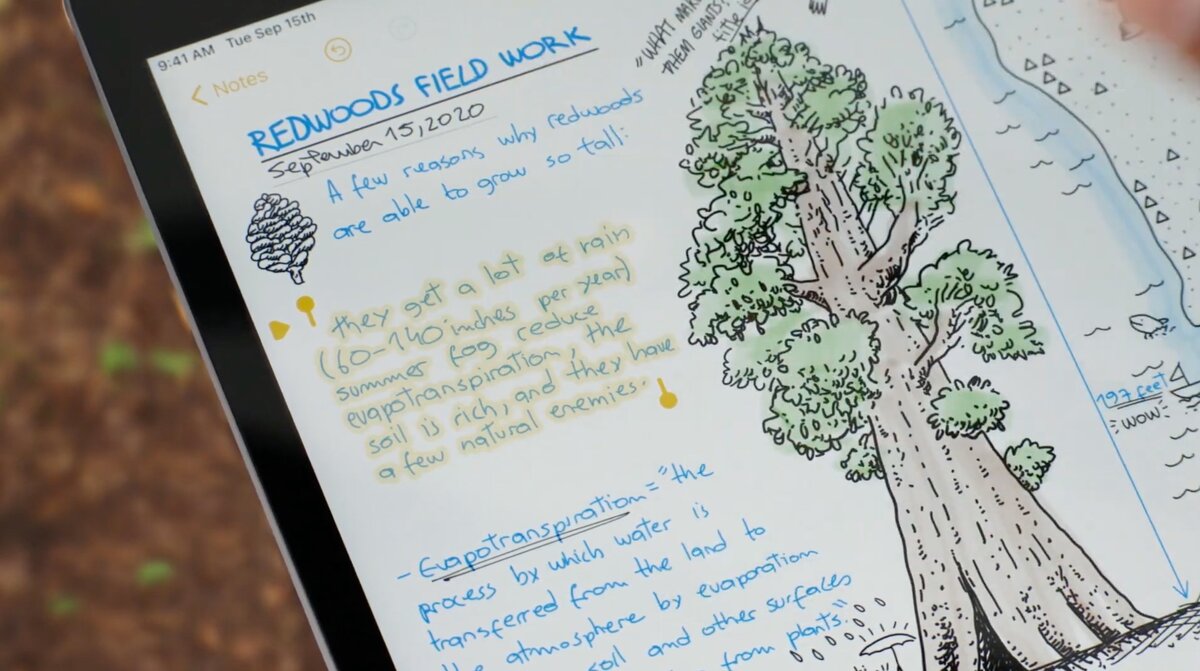 9:41 AM Tue Sep 15th
Notes
REDWOODS FIELD WORK
September 15, 2020
A few reasons why redwoods
are able to grow so tall:
they get a lot of rain
(60-140 inches per year)
summer fog reduce
evapotranspiration, the
soil is rich, and they have
a few natural enemies.
- Evapotranspiration = "the
process by which water is
transferred from the land to
the atmosphere by evaporation
soil and other surfaces
from plants."
"WHAT
THEM GIANTS"
title
197 feet
WOW